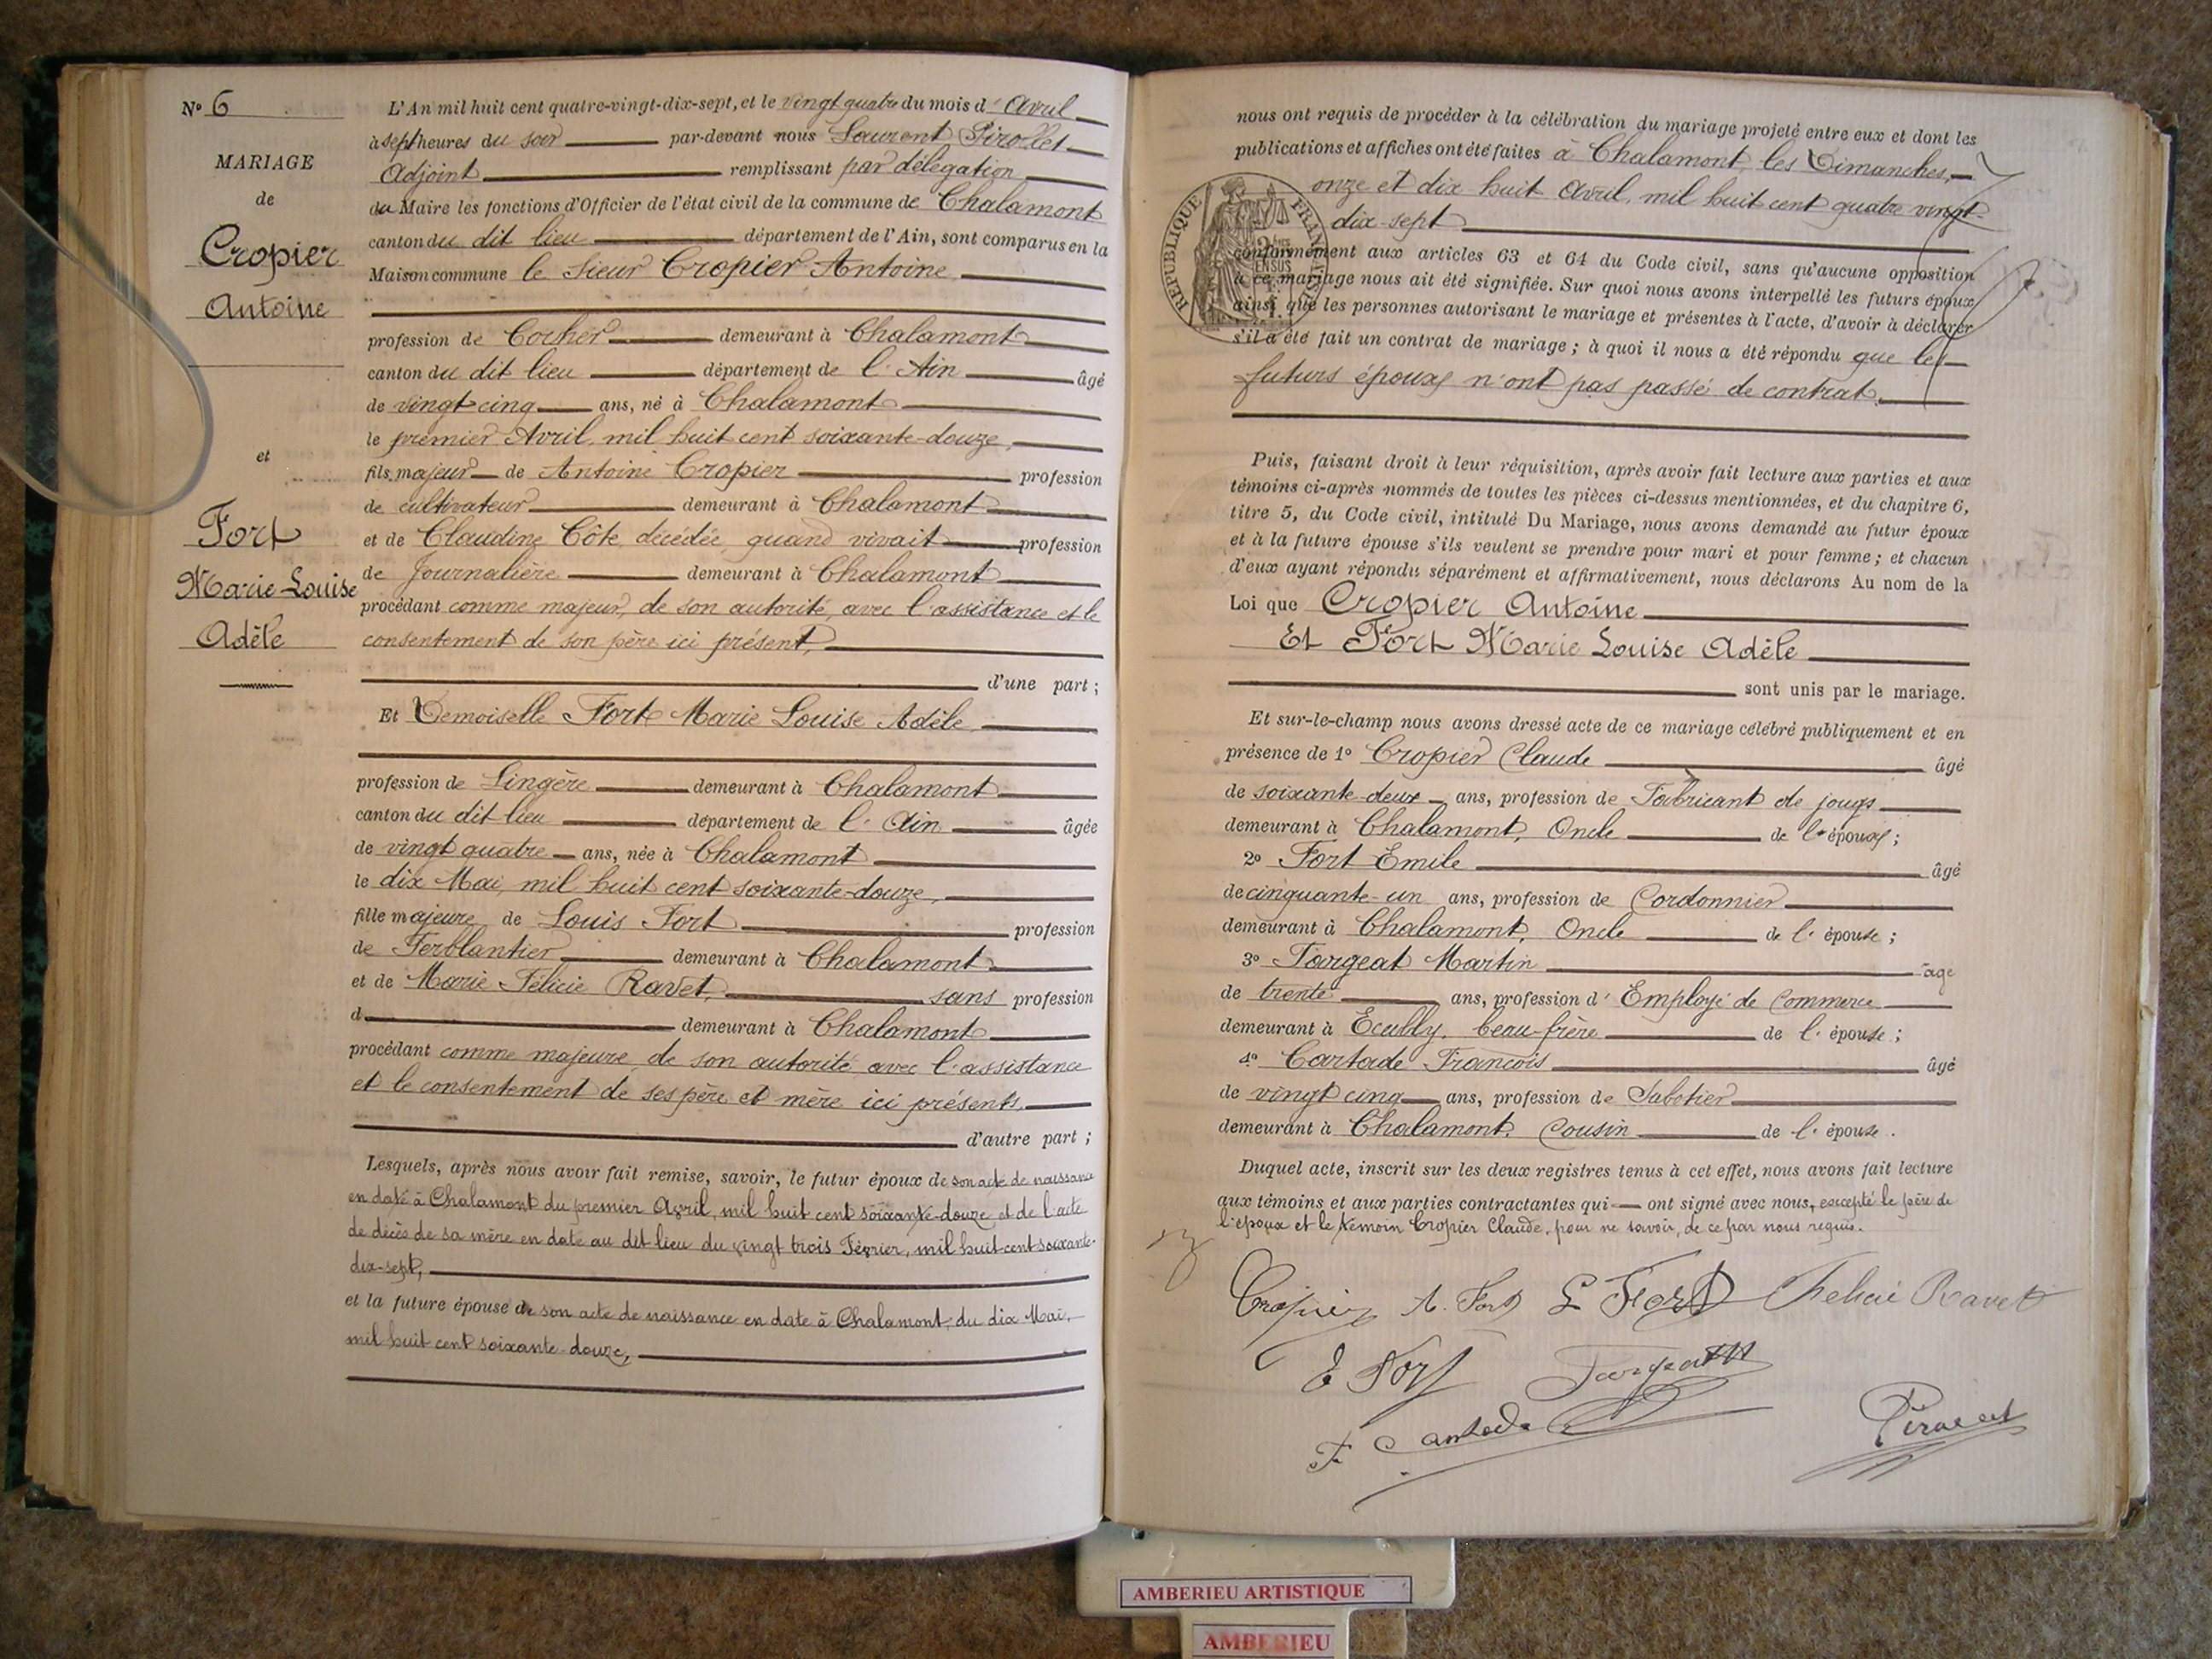 N° 6
MARIAGE
de
Cropier
Antoine
et
Fort
Marie-Louise
Adèle
L'An mil huit cent quatre-vingt-dix-sept, et le vingt quatre du mois d' Avril
à sept heures du soir par-devant nous Laurent Pirollet
Adjoint remplissant par délégation
du Maire les fonctions d'Officier de l'état civil de la commune de Chalamont
canton du dit lieu département de l'Ain, sont comparus en la
Maison commune le sieur Cropier Antoine
profession de Cocher demeurant à Chalamont
canton du dit lieu département de l'Ain âgé
de vingt cinq ans, né à Chalamont
le premier Avril, mil huit cent soixante-douze,
fils majeur de Antoine Cropier profession
de cultivateur demeurant à Chalamont
et de Claudine Côte, décédée, quand vivait profession
de Journalière demeurant à Chalamont
procédant comme majeur, de son autorité, avec l'assistance et le
consentement de son père ici présent,
d'une part ;
Et Demoiselle Fort Marie Louise Adèle
profession de Lingère demeurant à Chalamont
canton du dit lieu département de l'Ain âgée
de vingt quatre ans, née à Chalamont
le dix Mai, mil huit cent soixante-douze,
fille majeure de Louis Fort profession
de Ferblantier demeurant à Chalamont
et de Marie Félicie Ravet, sans profession
d demeurant à Chalamont
procédant comme majeure, de son autorité avec l'assistance
et le consentement de ses père et mère ici présents,
d'autre part ;
Lesquels, après nous avoir fait remise, savoir, le futur époux de son acte de naissance
en date à Chalamont du premier Avril, mil huit cent soixante-douze, et de l'acte
de décès de sa mère en date au dit lieu du vingt trois Février, mil huit-cent soixante-
dix-sept,
et la future épouse de son acte de naissance en date à Chalamont, du dix Mai,
mil huit cent soixante-douze,
nous ont requis de procéder à la célébration du mariage projeté entre eux et dont les
publications et affiches ont été faites à Chalamont, les Dimanches,
onze et dix huit Avril, mil huit cent quatre vingt-
dix-sept
RÉPUBLIQUE FRAN
conformément aux articles 63 et 64 du Code civil, sans qu'aucune opposition
à ce mariage nous ait été signifiée. Sur quoi nous avons interpellé les futurs époux
ainsi que les personnes autorisant le mariage et présentes à l'acte, d'avoir à déclarer
s'il a été fait un contrat de mariage ; à quoi il nous a été répondu que les
futurs époux n'ont pas passé de contrat.
Puis, faisant droit à leur réquisition, après avoir fait lecture aux parties et aux
témoins ci-après nommés de toutes les pièces ci-dessus mentionnées, et du chapitre 6,
titre 5, du Code civil, intitulé Du Mariage, nous avons demandé au futur époux
et à la future épouse s'ils veulent se prendre pour mari et pour femme ; et chacun
d'eux ayant répondu séparément et affirmativement, nous déclarons Au nom de la
Loi que Cropier Antoine
Et Fort Marie Louise Adèle
sont unis par le mariage.
Et sur-le-champ nous avons dressé acte de ce mariage célébré publiquement et en
présence de 1° Cropier Claude âgé
de soixante-deux ans, profession de Fabricant de jougs
demeurant à Chalamont, Oncle de l'époux ;
2° Fort Emile âgé
de cinquante-un ans, profession de Cordonnier
demeurant à Chalamont, Oncle de l'épouse ;
3° Targeat Martin âgé
de trente ans, profession d'Employé de Commerce
demeurant à Ecully, beau-frère de l'épouse ;
4° Cartade François âgé
de vingt cinq ans, profession de Sabotier
demeurant à Chalamont, Cousin de l'épouse.
Duquel acte, inscrit sur les deux registres tenus à cet effet, nous avons fait lecture
aux témoins et aux parties contractantes qui ont signé avec nous, excepté le père de
l'époux et le témoin Cropier Claude, pour ne savoir, de ce par nous requis.
Cropier A. Fort L Fort Felicie Ravet
E Fort Targeat
F Cartade
AMBERIEU ARTISTIQUE
AMBERIEU